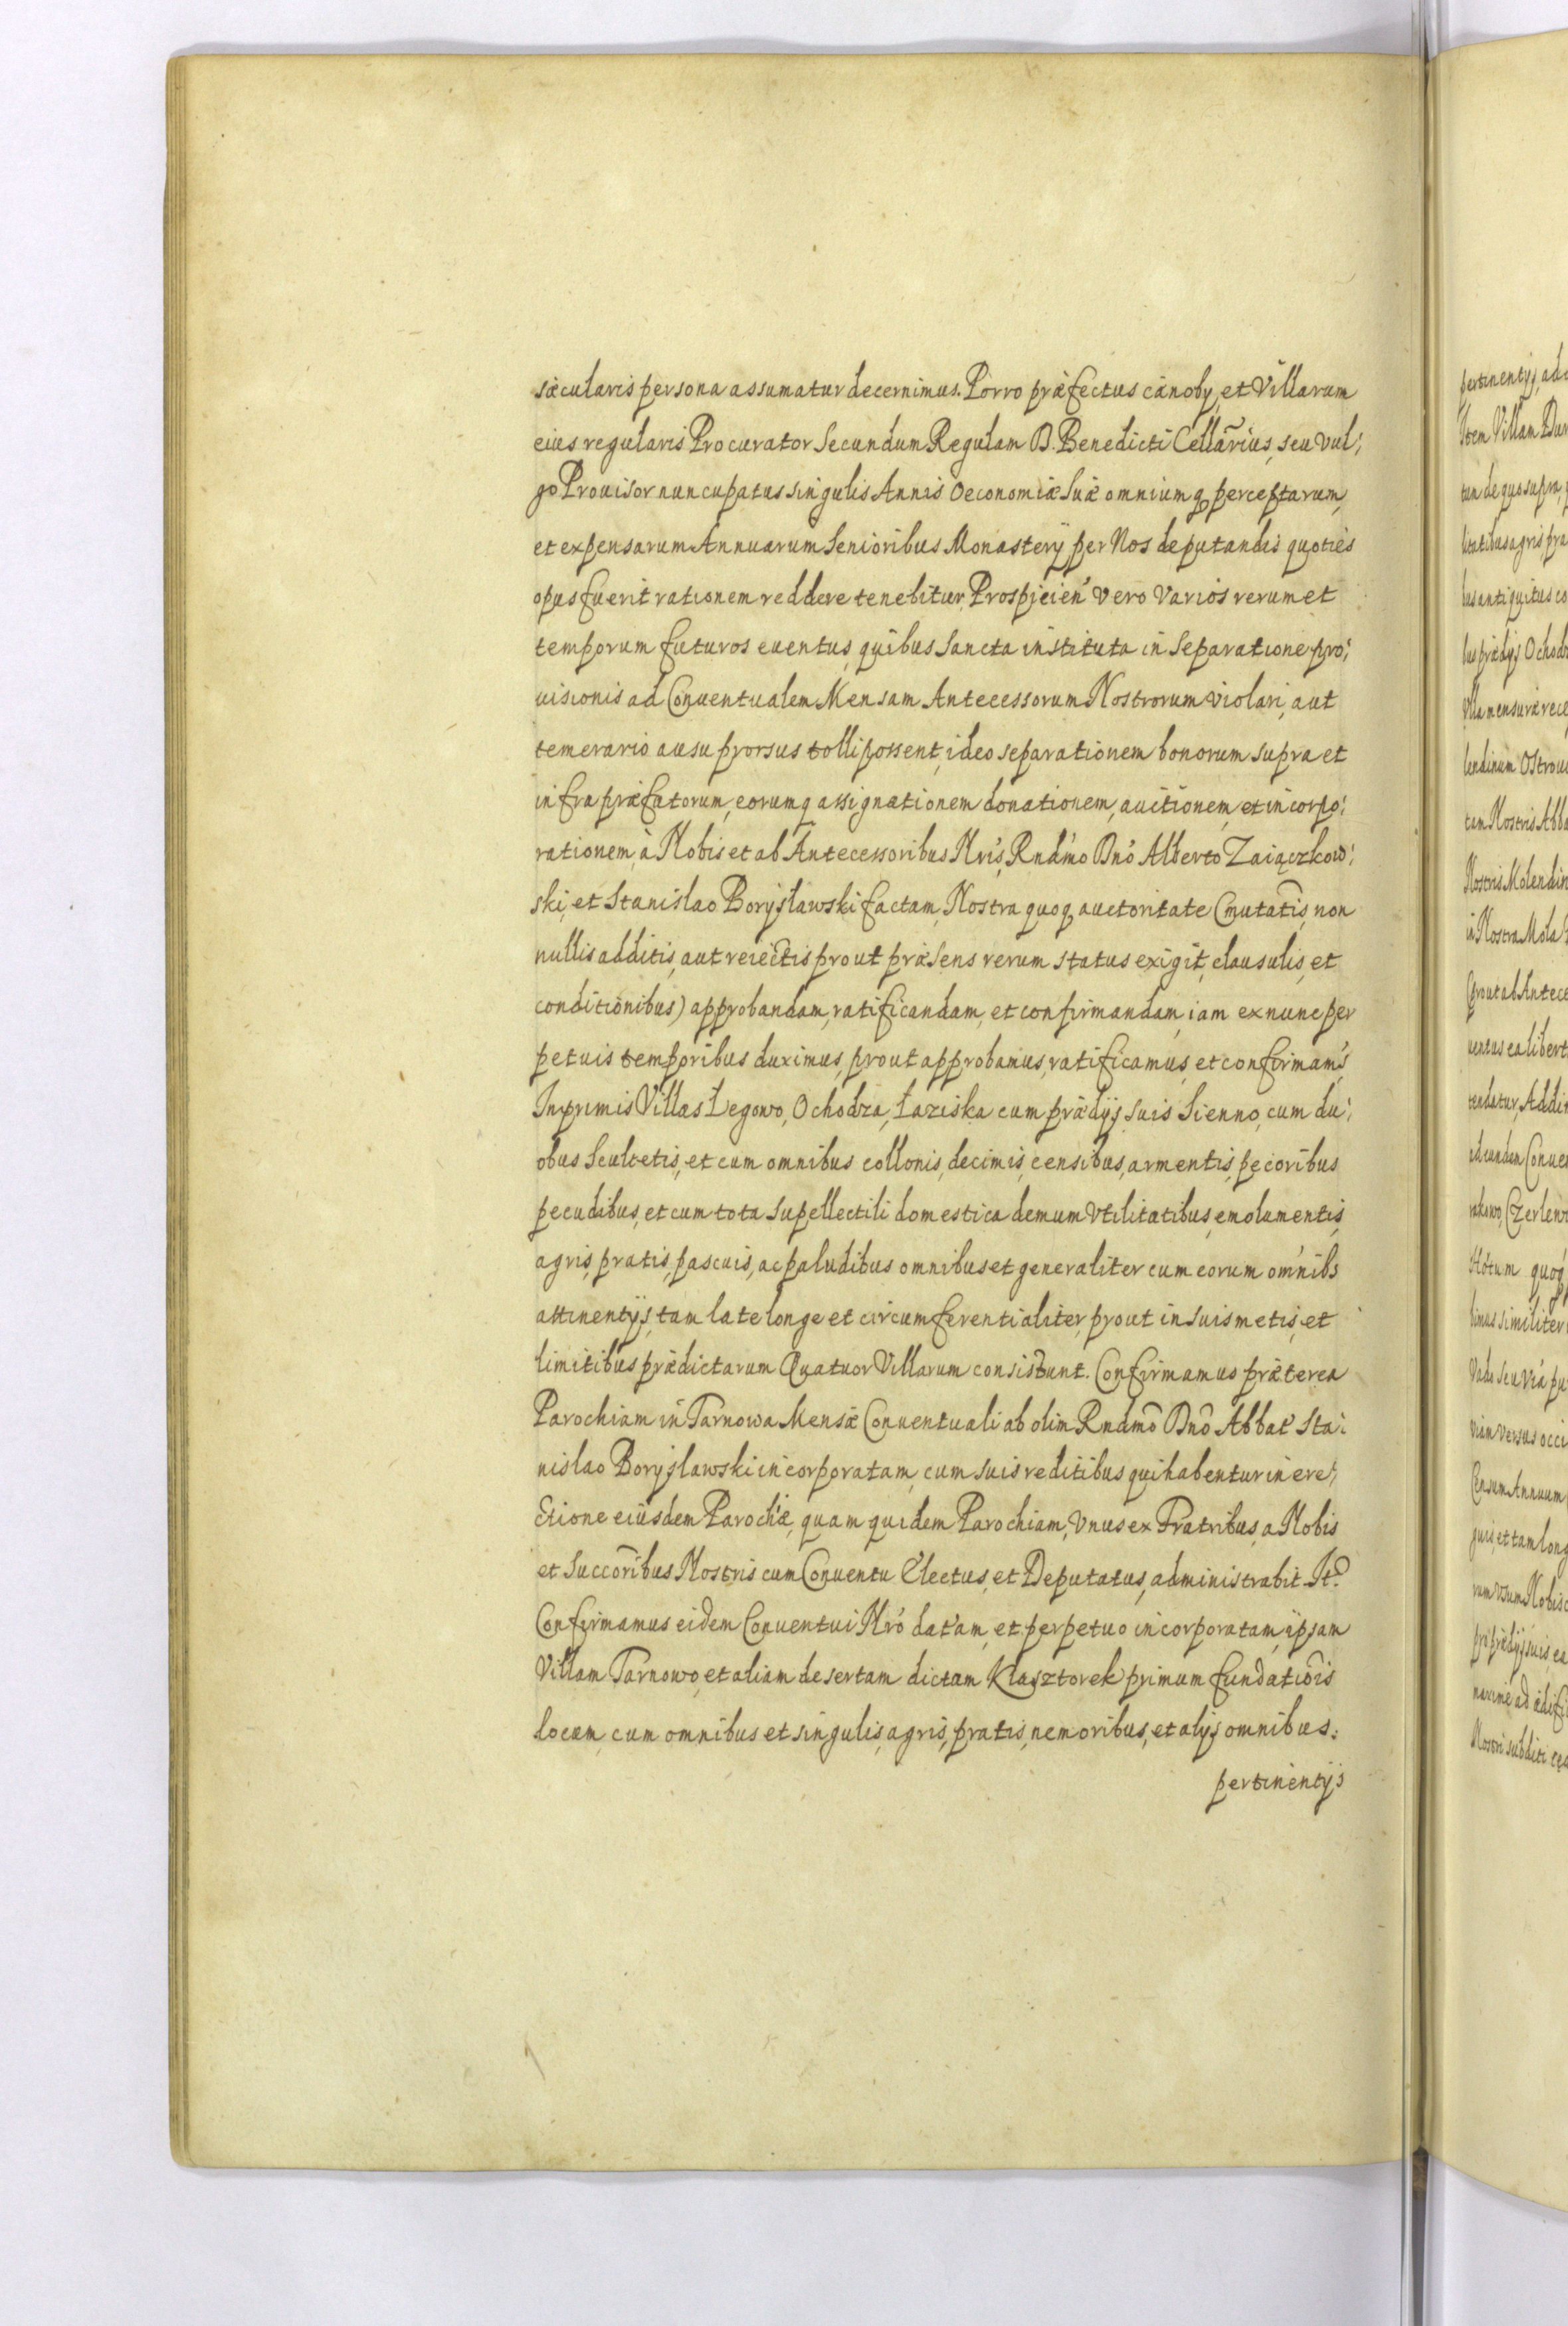 sæcularis persona assumatur decernimus. Porro præfectus cænobÿ, et Villarum
eius regularis Procurator Secundum Regulam B. Benedicti Cellarius, seu vul:
go Prouisor nuncupatus singulis Annis Oeconomiæ Suæ omniumq perceptarum,
et expensarum Annuarum Senioribus Monasterÿ per Nos deputandis quoties
opus fuerit rationem reddere tenebitur. Prospicien' vero varios rerum et
temporum futuros euentus, quibus Sancta instituta in Separatione pro:
uisionis ad Conuentualem Mensam Antecessorum Nostrorum violari, aut
temerario ausu prorsus tolli possent, ideo separationem bonorum supra et
infra præfatorum, eorumq assignationem donationem, auctionem, et incorpo:
rationem, à Nobis et ab Antecessoribus Nris, Rndmo Dno Alberto Zaiączkow:
ski, et Stanislao Boryslawski factam, Nostra quoq auctoritate (mutatis, non
nullis additis, aut reiectis prout præsens rerum status exigit, clausulis, et
conditionibus) approbandam, ratificandam, et confirmandam, iam ex nunc per
petuis temporibus duximus, prout approbamus, ratificamus, et confirmam's
Inprimis Villas Łegowo, Ochodza, Łaziska cum prædÿs suis Sienno, cum du:
obus Scultetis, et cum omnibus collonis, decimis, censibus, armentis, pecoribus
pecudibus, et cum tota Supellectili domestica demum Vtilitatibus, emolumentis,
agris, pratis, pascuis, ac paludibus omnibus et generaliter cum eorum omnibs
attinentÿs, tam late longe et circumferentialiter, prout in suis metis, et
limitibus prædictarum Quatuor Villarum consistunt. Confirmamus præterea
Parochiam in Tarnowa Mensæ Conuentuali ab olim Rndmo Dno Abbat' Sta:
nislao Boryslawski incorporatam, cum suis reditibus qui habentur in ere:
ctione eiusdem Parochiæ, quam quidem Parochiam, Vnus ex Fratribus, a Nobis
et Succoribus Nostris cum Conuentu Electus, et Deputatus, administrabit. It.
Confirmamus eidem Conuentui Nro datam, et perpetuo incorporatam, ipsam
Villam Tarnowo, et aliam desertam dictam Klasztorek primum fundatiois
locum, cum omnibus et singulis, agris, pratis, nemoribus, et alÿs omnibus.
pertinentÿs